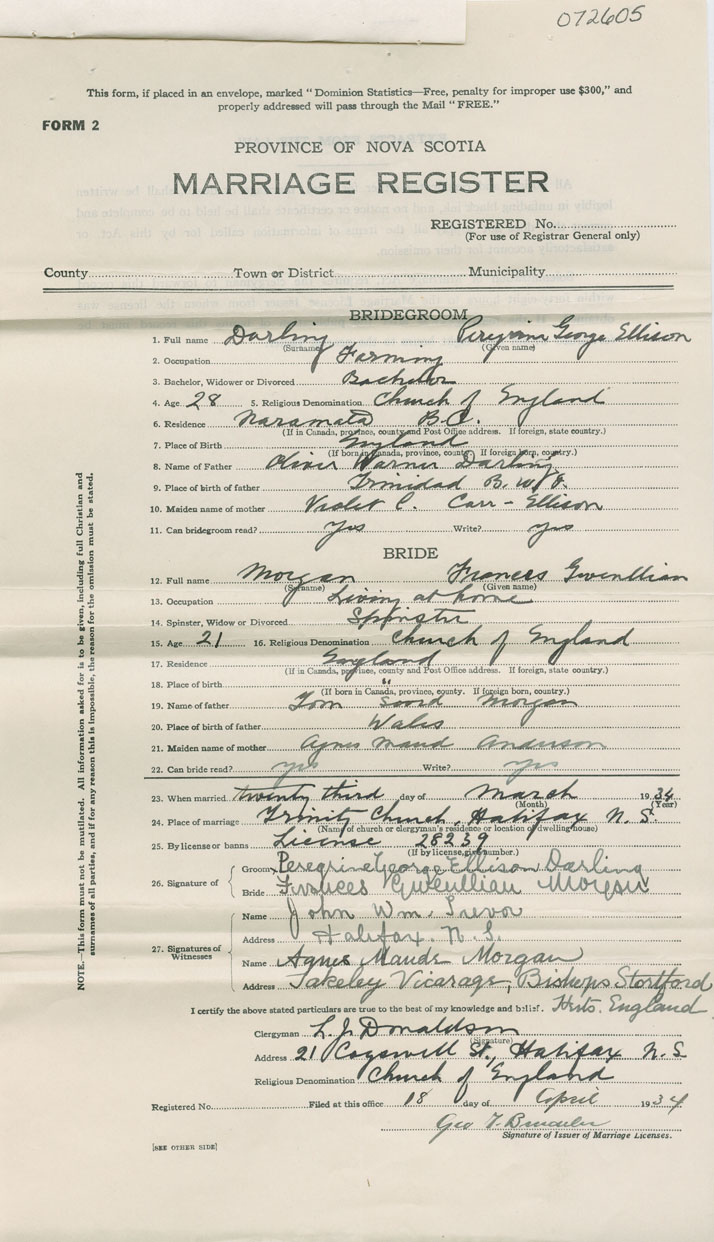 072605
This form, if placed in an envelope, marked "Dominion Statistics—Free, penalty for improper use $300," and
properly addressed will pass through the Mail "FREE."
FORM 2
PROVINCE OF NOVA SCOTIA
MARRIAGE REGISTER
REGISTERED No.
(For use of Registrar General only)
County Town or District Municipality
BRIDEGROOM
1. Full name Darling Peregrine George Ellison
(Surname) (Given name)
2. Occupation Farming
3. Bachelor, Widower or Divorced Bachelor
4. Age 28 5. Religious Denomination Church of England
6. Residence Naramata B.C.
(If in Canada, province, county and Post Office address. If foreign, state country.)
7. Place of Birth England
(If born in Canada, province, county. If foreign born, country.)
8. Name of Father Oliver Warner Darling
9. Place of birth of father Trinidad B. W. I.
10. Maiden name of mother Violet C. Carr-Ellison
11. Can bridegroom read? Yes Write? yes
BRIDE
12. Full name Morgan Frances Gwenllian
(Surname) (Given name)
13. Occupation Living at home
14. Spinster, Widow or Divorced Spinster
15. Age 21 16. Religious Denomination Church of England
17. Residence England
(If in Canada, province, county and Post Office address. If foreign, state country.)
18. Place of birth "
(If born in Canada, province, county. If foreign born, country.)
19. Name of father Tom Morgan
20. Place of birth of father Wales
21. Maiden name of mother Agnes Maud Anderson
22. Can bride read? yes Write? yes
23. When married twenty third day of March 1934
(Month) (Year)
24. Place of marriage Trinity Church, Halifax N.S.
(Name of church or clergyman's residence or location of dwelling house)
25. By license or banns License 28239
(If by license, give number.)
26. Signature of
Groom Peregrine George Ellison Darling
Bride Frances Gwenllian Morgan
27. Signatures of Witnesses
Name John Wm. Trevor
Address Halifax. N.S.
Name Agnes Maude Morgan
Address Takeley Vicarage, Bishops Stortford
Herts. England
I certify the above stated particulars are true to the best of my knowledge and belief.
Clergyman L. J. Donaldson
(Signature)
Address 21 Cogswell St., Halifax N.S
Religious Denomination Church of England
Registered No. Filed at this office 18 day of April 1934
Geo T.
Signature of Issuer of Marriage Licenses.
[SEE OTHER SIDE]
NOTE.—This form must not be mutilated. All information asked for is to be given, including full Christian and
surnames of all parties, and if for any reason this is impossible, the reason for the omission must be stated.